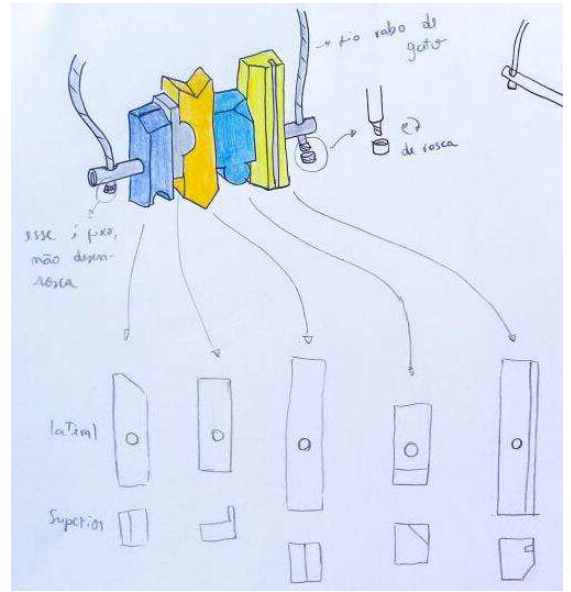 → fio rabo de
gato
é de
de rosca
esse é fixo,
não desen-
rosca
lateral
Superior